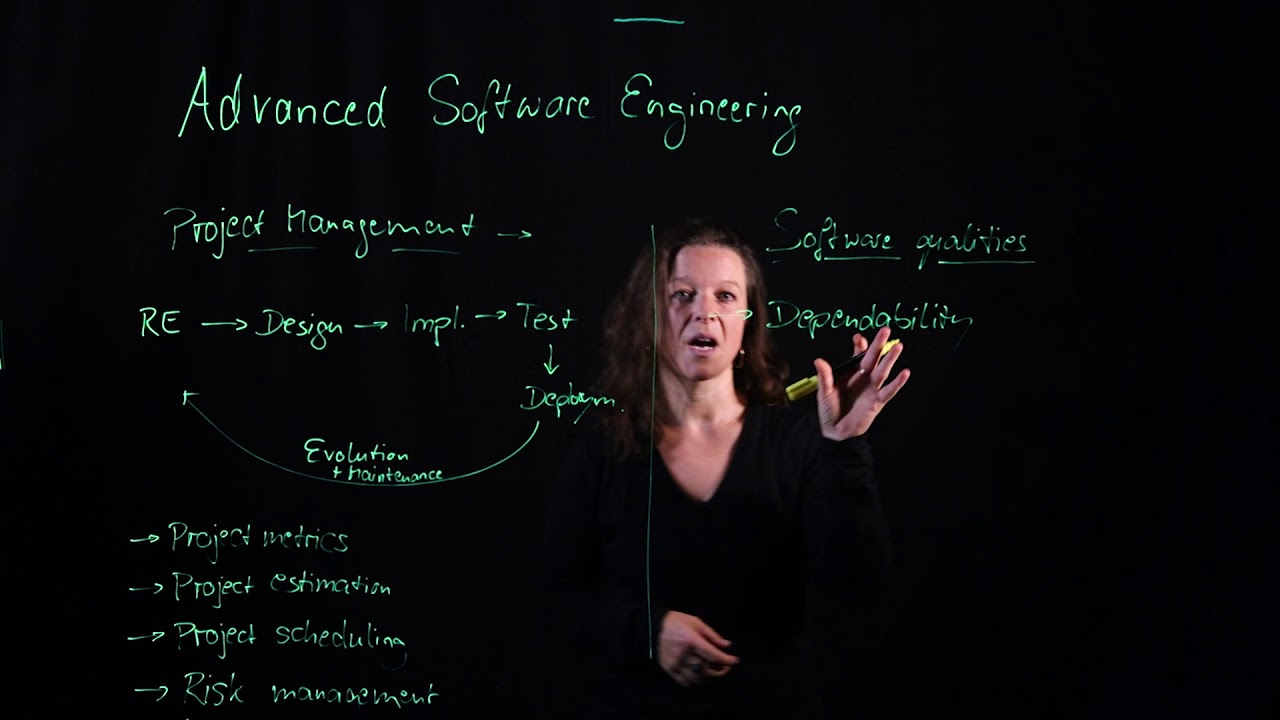 Advanced Software Engineering
Project Management →
RE → Design → Impl. → Test
↓
Deploym.
Evolution
+ Maintenance
→ Project metrics
→ Project estimation
→ Project scheduling
→ Risk management
Software qualities
→ Dependability